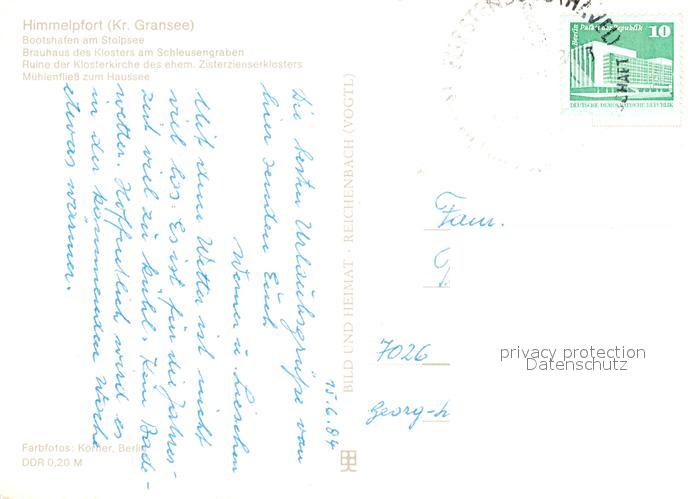 Himmelpfort (Kr. Gransee)
Bootshafen am Stolpsee
Brauhaus des Klosters am Schleusengraben
Ruine der Klosterkirche des ehem. Zisterzienserklosters
Mühlenfließ zum Haussee
15.6.84
Die besten Urlaubsgrüße von
hier senden Euch
Werner u. Lieschen
Mit dem Wetter ist nicht
viel los. Es ist für die Jahres-
zeit viel zu kühl. Kein Bade-
wetter. Hoffentlich wird es
in der kommenden Woche
etwas wärmer.
Farbfotos: Körner, Berlin
DDR 0,20 M
BILD UND HEIMAT · REICHENBACH (VOGTL)
Berlin Palast der Republik
10
DEUTSCHE DEMOKRATISCHE REPUBLIK
Fam.
7026
Georg-
privacy protection
Datenschutz